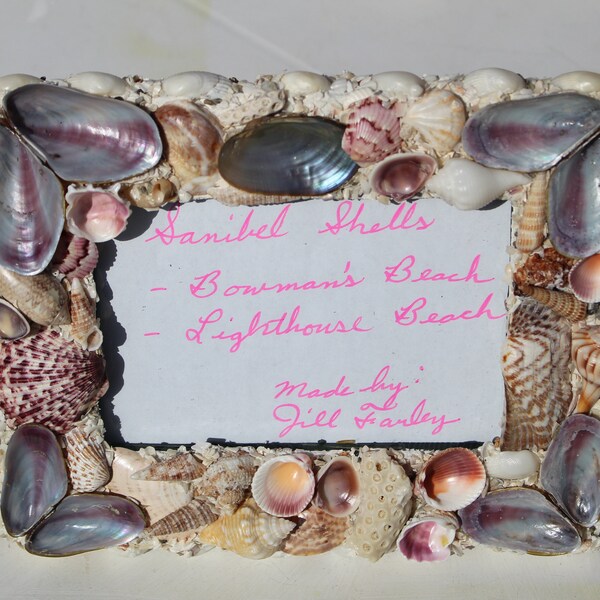 Sanibel Shells
- Bowman's Beach
- Lighthouse Beach
Made by:
Jill Farley